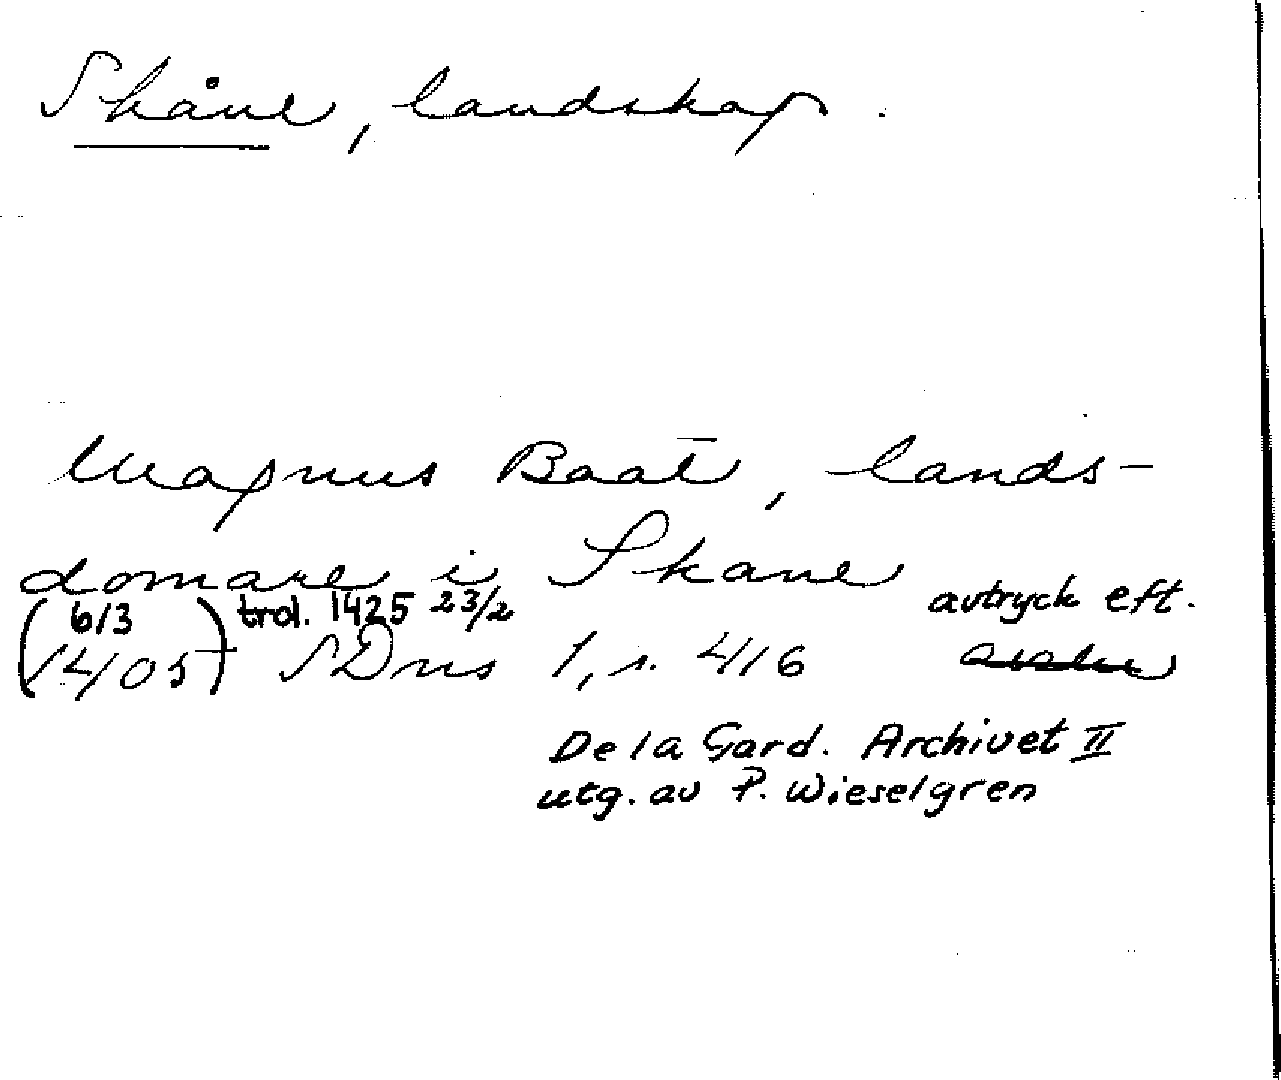 Skåne, landskap.
Magnus Baat, lands-
domare i Skane
(6/3) trol. 1425 23/2 avtryck eft.
1405 SDns 1, s. 416
De la Gard. Archivet II
utg. av P. Wieselgren